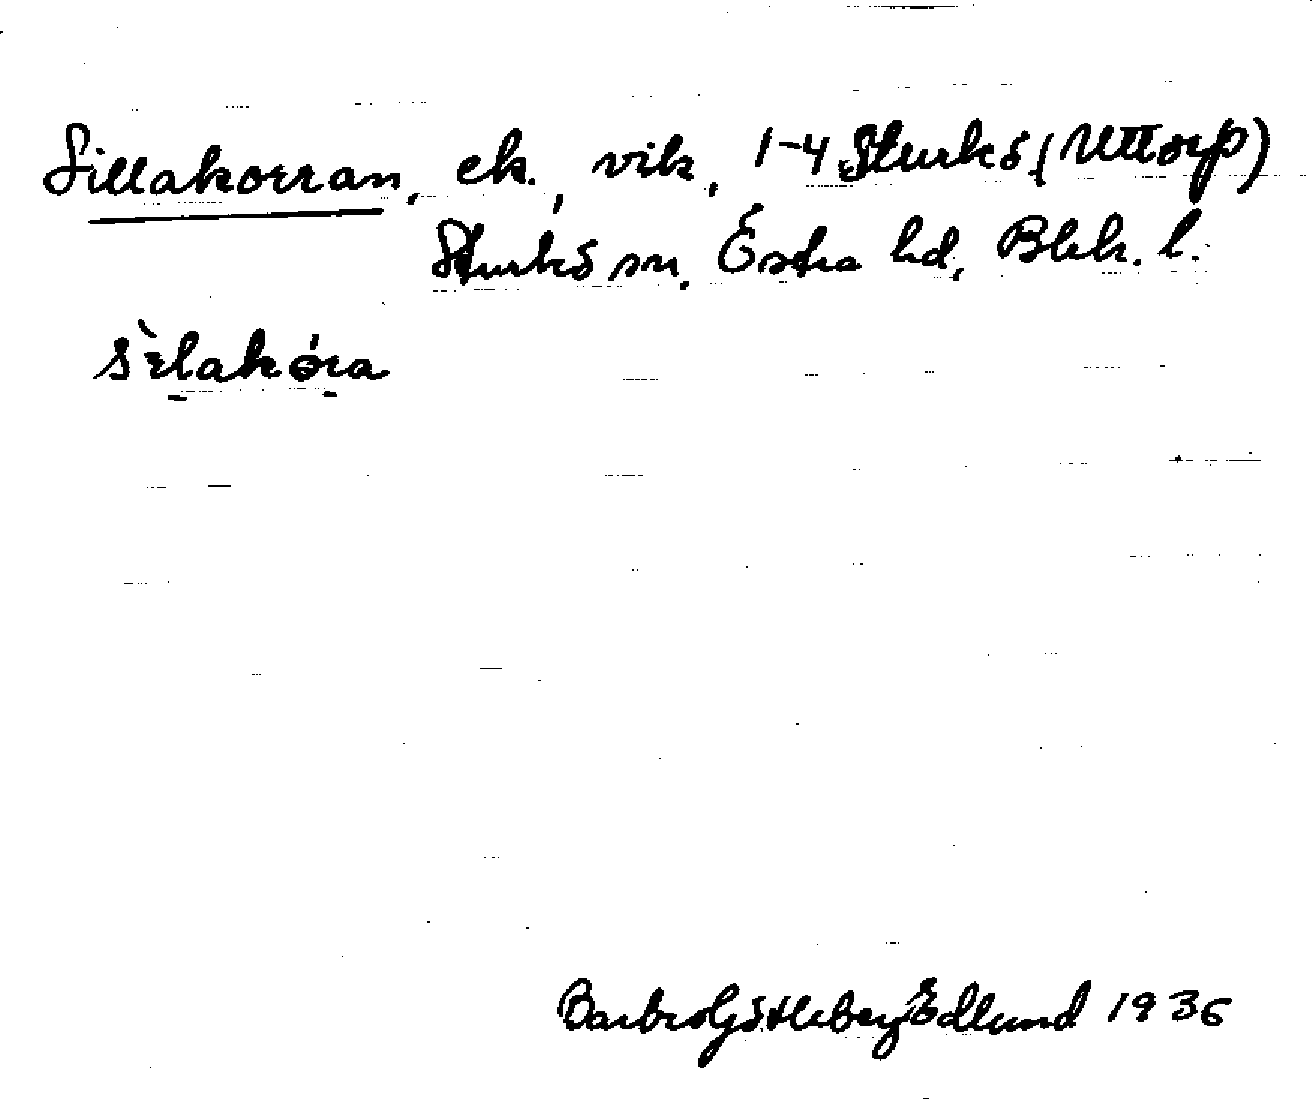 Sillakorran, ek., vik, 1-4 Sturkö (Uttorp)
Sturkö sn, Östra hd, Blek. l.
sìlakóra
Barbro Götleberg Edlund 1936